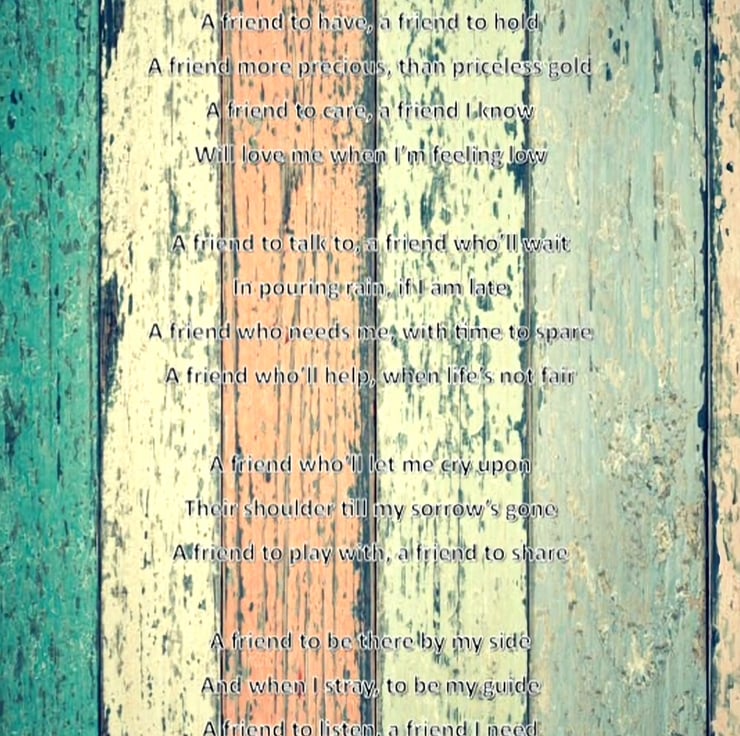 A friend to have, a friend to hold
A friend more precious, than priceless gold
A friend to care, a friend I know
Will love me when I'm feeling low
A friend to talk to, a friend who'll wait
In pouring rain, if I am late
A friend who needs me, with time to spare
A friend who'll help, when life's not fair
A friend who'll let me cry upon
Their shoulder till my sorrow's gone
A friend to play with, a friend to share
A friend to be there by my side
And when I stray, to be my guide
A friend to listen, a friend I need